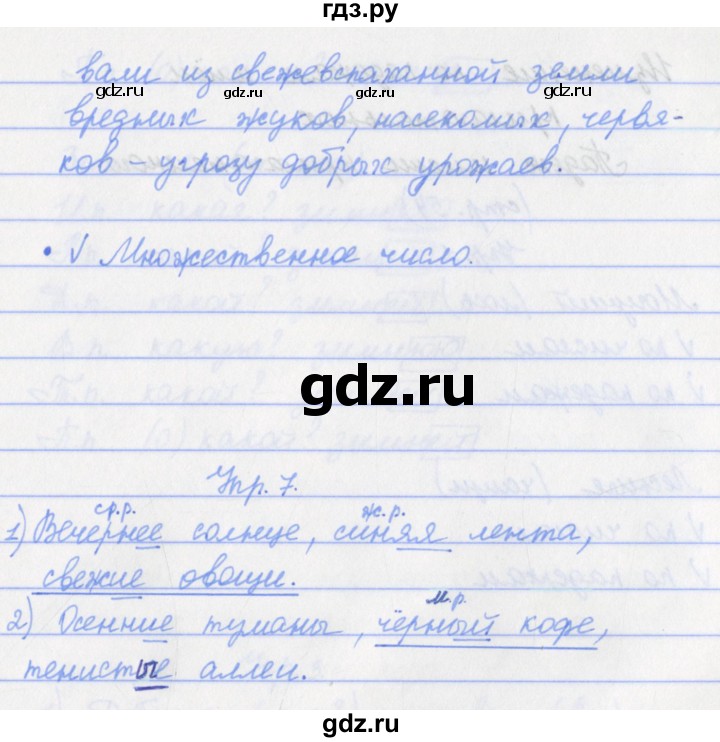 гдз.ру
вали из свежевспаханной земли
gdz.ru gdz.ru gdz.ru gdz.ru
вредных жуков, насекомых, червя-
ков – угрозу добрых урожаев.
gdz.ru gdz.ru
• √ Множественное число.
gdz.ru
Упр. 7.
ср.р. ж.р.
1) Вечернее солнце, синяя лента,
свежие овощи.
м.р.
2) Осенние туманы, чёрный кофе,
тенистые аллеи.
gdz.ru